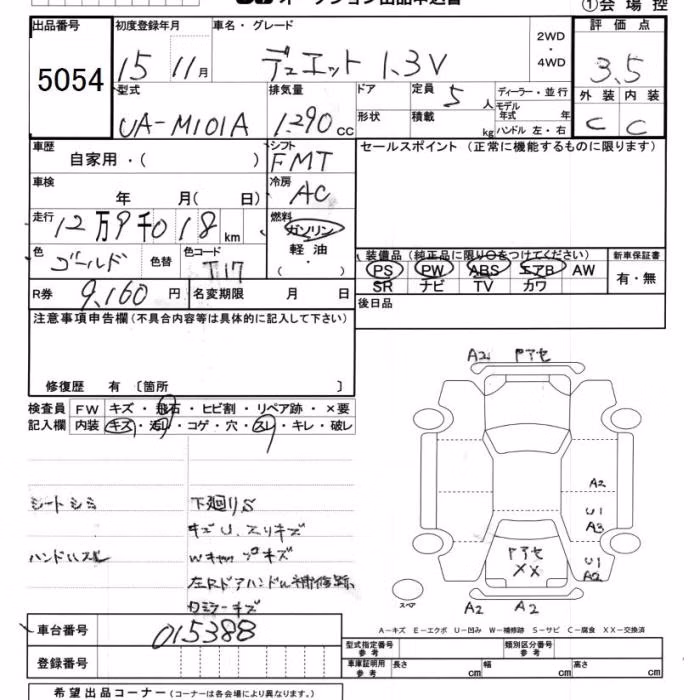 オークション出品申込書
①会場控
出品番号 初度登録年月 車名・グレード 評価点
5054 15 11月 デュエット 1.3V 2WD・4WD 3.5
型式 排気量 ドア 定員 5人 ディーラー・並行 外装 内装
UA-M101A 1.290cc 形状 積載 kg モデル年式 年 C C
ハンドル 左・右
車歴 自家用・( ) シフト FMT セールスポイント (正常に機能するものに限ります)
車検 年 月( 日) 冷房 AC
走行 12万9千018km 燃料 ガソリン
軽油
・
( )
色 ゴールド 色替 色コード T17
装備品 (純正品に限り○をつけてください) 新車保証書
PS PW ABS エアB AW 有・無
SR ナビ TV カワ
R券 9,160円 名変期限 月 日 後日品
注意事項申告欄(不具合内容等は具体的に記入して下さい)
修復歴 有 〔箇所 〕
検査員 FW キズ・飛石・ヒビ割・リペア跡・×要
記入欄 内装 キズ・汚レ・コゲ・穴・スレ・キレ・破レ
シートシミ 下廻りS
キズU、スリキズ
ハンドルスレ Wキャップキズ
左Rドアハンドル補修跡、
Dミラーキズ
A2 Pアセ
A2
U1
A3
U1
A2
Pアセ
XX
スペア
A2 A2
A−キズ E−エクボ U−凹み W−補修跡 S−サビ C−腐食 XX−交換済
車台番号 015388
型式指定番号 参考 類別区分番号 参考
登録番号
車庫証明用 参考 長さ cm 幅 cm 高さ cm
希望出品コーナー(コーナーは各会場により異なります。)